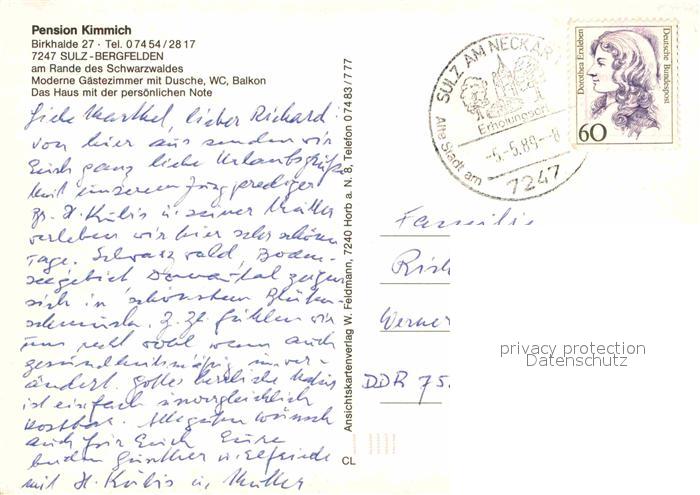 Pension Kimmich
Birkhalde 27 · Tel. 0 74 54 / 28 17
7247 SULZ-BERGFELDEN
am Rande des Schwarzwaldes
Moderne Gästezimmer mit Dusche, WC, Balkon
Das Haus mit der persönlichen Note
Liebe Marthel, lieber Richard.
von hier aus senden wir
Euch ganz liebe Urlaubsgrüße
Mit unserem
H. Kübis u. seiner Mutter
verleben wir hier sehr schöne
Tage. Schwarzwald, Boden-
seegebiet Donautal zeigen
sich in schönsten Blüten-
schmuck. Z. Zt. fühlen wir
uns recht wohl wenn auch
gesundheitsmäßig unver-
ändert. Gottes herrliche Natur
ist einfach unvergleichlich
kostbar. Alles Guten wünsch
auch für Euch Eure
beiden Günther u. Elfriede
mit H. Kübis u. Mutter
Ansichtskartenverlag W. Feldmann, 7240 Horb a. N. 8, Telefon 0 74 83 / 7 77
CL
SULZ AM NECKAR
Erholungsort
-5.-5.89--8
Alte Stadt am
7247
Dorothea Erxleben
Deutsche Bundespost
60
Familie
Rich
Werner
DDR 75.
privacy protection
Datenschutz